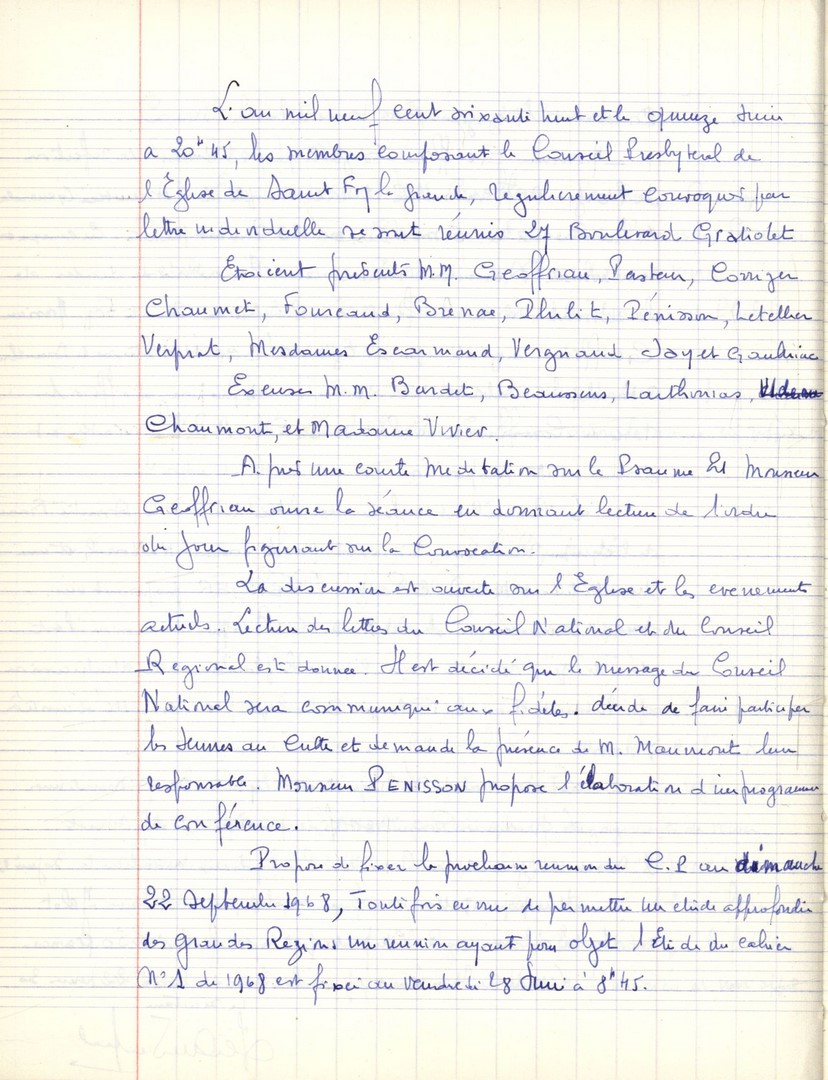 L'an mil neuf cent soixante huit et le quinze Juin
a 20h45, les membres composant le Conseil Presbyteral de
l'Eglise de Saint Foy la Grande, regulierement convoqués par
lettre individuelle se sont réunis 27 Boulevard Gratiolet
Etaient présents M.M. Geoffriau, Pasteur, Corrizer
Chaumet, Fourcaud, Brenac, Philit, Pénisson, Letellier
Verprat, Mesdames Escarmand, Vergnaud Joyet Gaudriac
Excuses M.M. Bardet, Beaussens, Larthomas,
Chaumont, et Madame Vivier.
A. près une courte meditation sur le Psaume Monsieur
Geoffriau ouvre la séance en donnant lecture de l'ordre
du jour figurant sur la Convocation.
La discussion est ouverte sur l'Eglise et les evenements
actuels. Lecture des lettres du Conseil National et du Conseil
Regional est donnee. Il est décidé que le message du Conseil
National sera communiqué aux fidèles. décide de faire participer
les Jeunes au Culte et demande la présence de M. Maumont leur
responsable. Monsieur PENISSON propose l'élaboration d'un programme
de conférence.
Propose de fixer la prochaine reunion du C.P au dimanche
22 Septembre 1968, Toutefois en vue de permettre un etude approfondie
des grandes Regions une reunion ayant pour objet l'Etude du cahier
N°1 de 1968 est fixée au vendredi 28 Juin à 8h45.